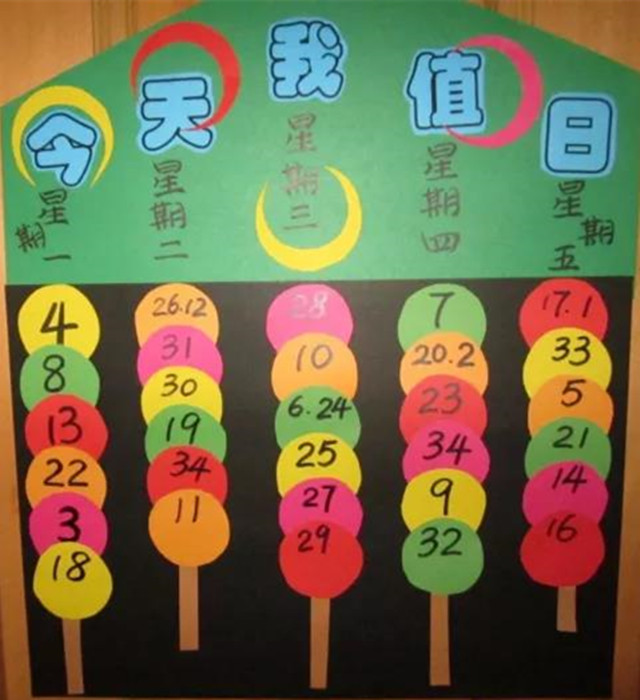 今天我值日
星期一
星期二
星期三
星期四
星期五
4
8
13
22
3
18
26.12
31
30
19
34
11
28
10
6.24
25
27
29
7
20.2
23
34
9
32
17.1
33
5
21
14
16